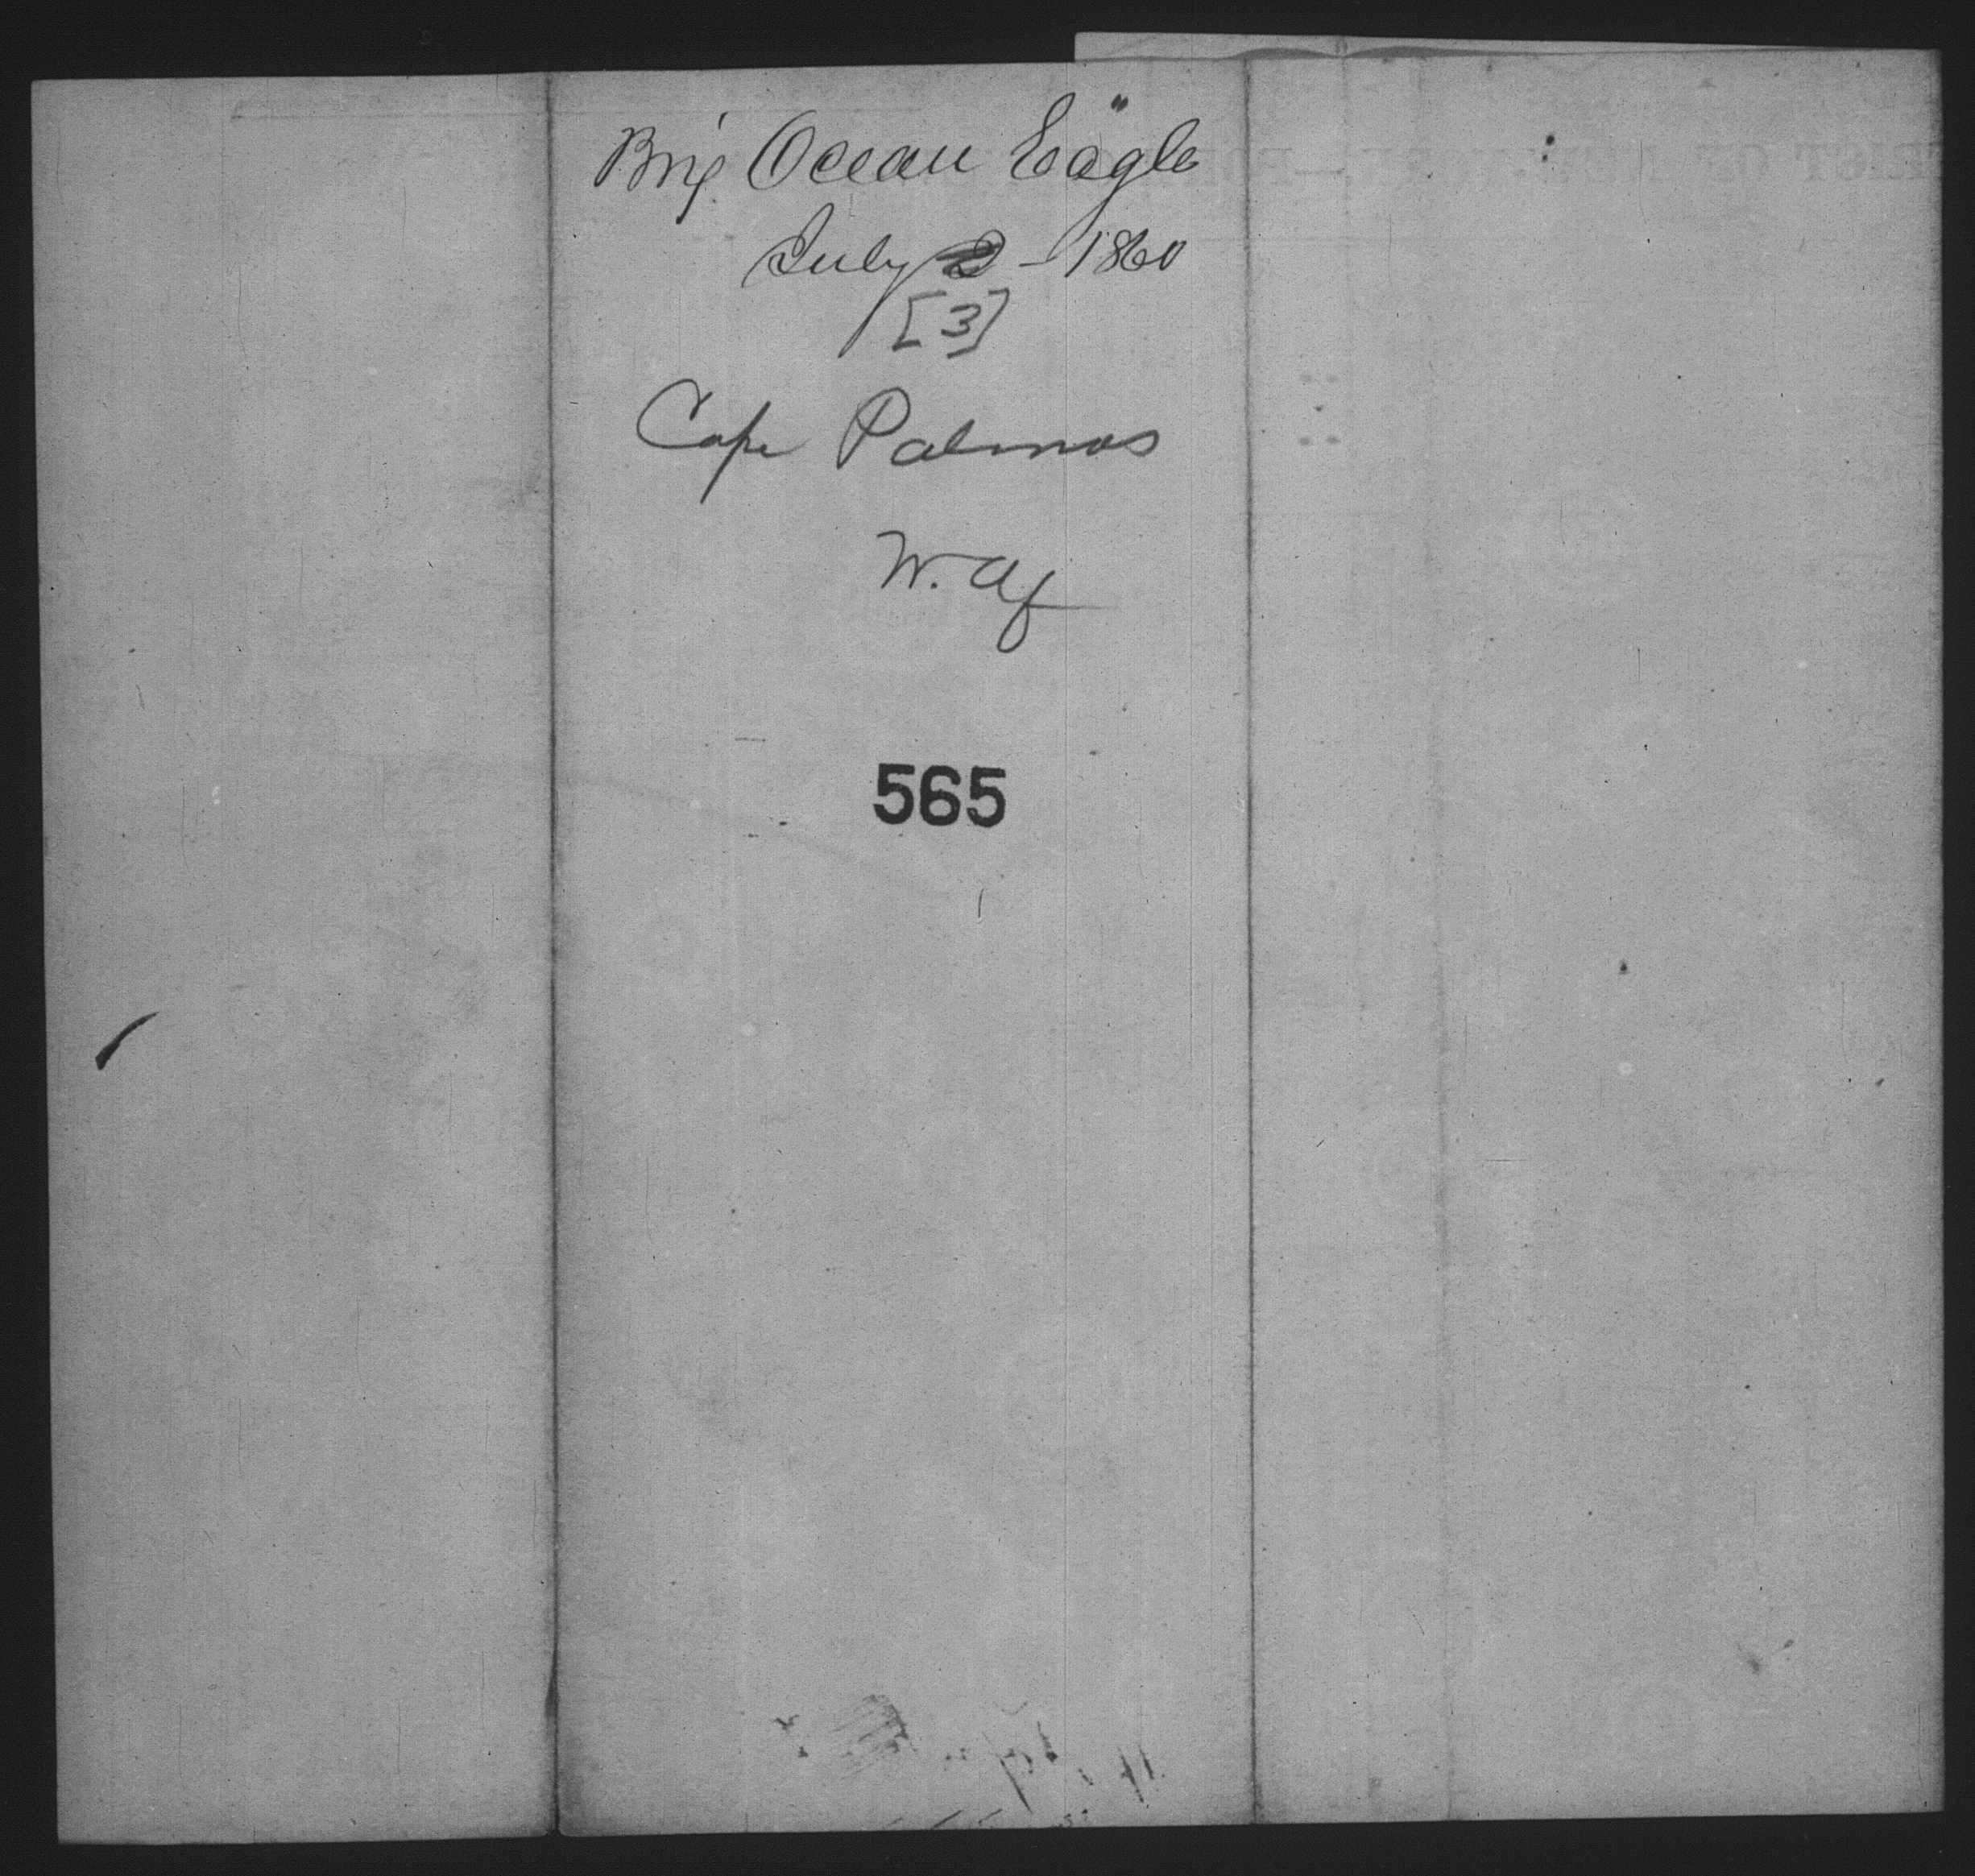 Brig Ocean Eagle
July 2 - 1860
[3]
Cape Palmas
W. Af
565